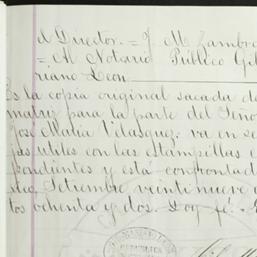 el Director. = J. M. Zambra
= El Notario Público Gil
riano Leon
Es la copia original sacada de
matriz para la parte del Seño
José Maria Vidasquez: va en se
jas utiles con las Stampillas
pondientes y está confrontad
Setiembre veinti nueve
tos ochenta y dos. Doy fé.
REPUBLICA